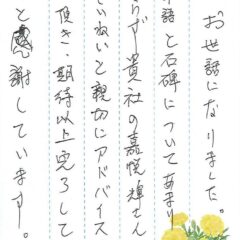 お世話になりました。
語と石碑についてあまり
らず貴社の嘉悦輝さん
ていねいと親切にアドバイス
頂き、期待以上完了して
と感謝しています。